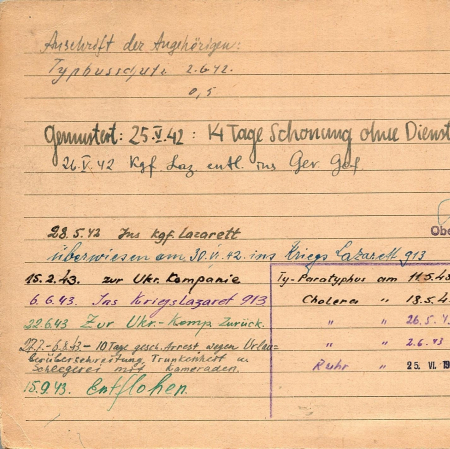 Anschrift der Angehörigen:
Typhusschutz 2.6.42.
0,5
Gemustert: 25.V.42: 14 Tage Schonung ohne Dienst
26.V.42 Kgf. Laz. entl. ins Gev. Gef
28.5.42 Ins Kgf. Lazarett
Obe
überwiesen am 30.VI.42 ins Kriegs Lazarett 913
15.2.43. zur Ukr. Kompanie
6.6.43. Ins Kriegslazaret 913
22.6.43 Zur Ukr.-Komp. Zurück.
27.7.-6.8.43 – 10 Tage gesch. Arrest wegen Urlau-
berüberschreitung, Trunkenheit u.
Schlegerei mit Kameraden.
15.9.43. Entflohen.
Ty-Paratyphus am 11.5.43
Cholera " 18.5.4
" " 26.5.4
" " 2.6.43
Ruhr " 25. VI. 19